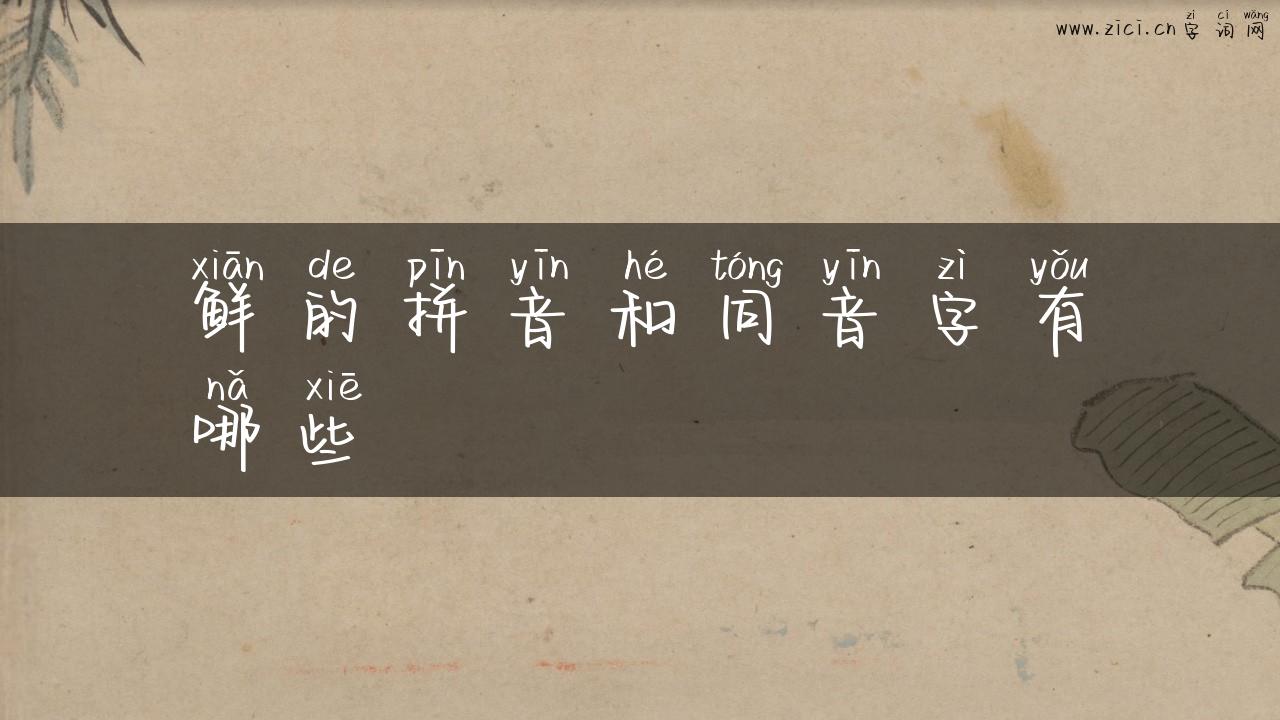 zì cí wǎng
www.zici.cn 字词网
xiān de pīn yīn hé tóng yīn zì yǒu
鲜的拼音和同音字有
nǎ xiē
哪些